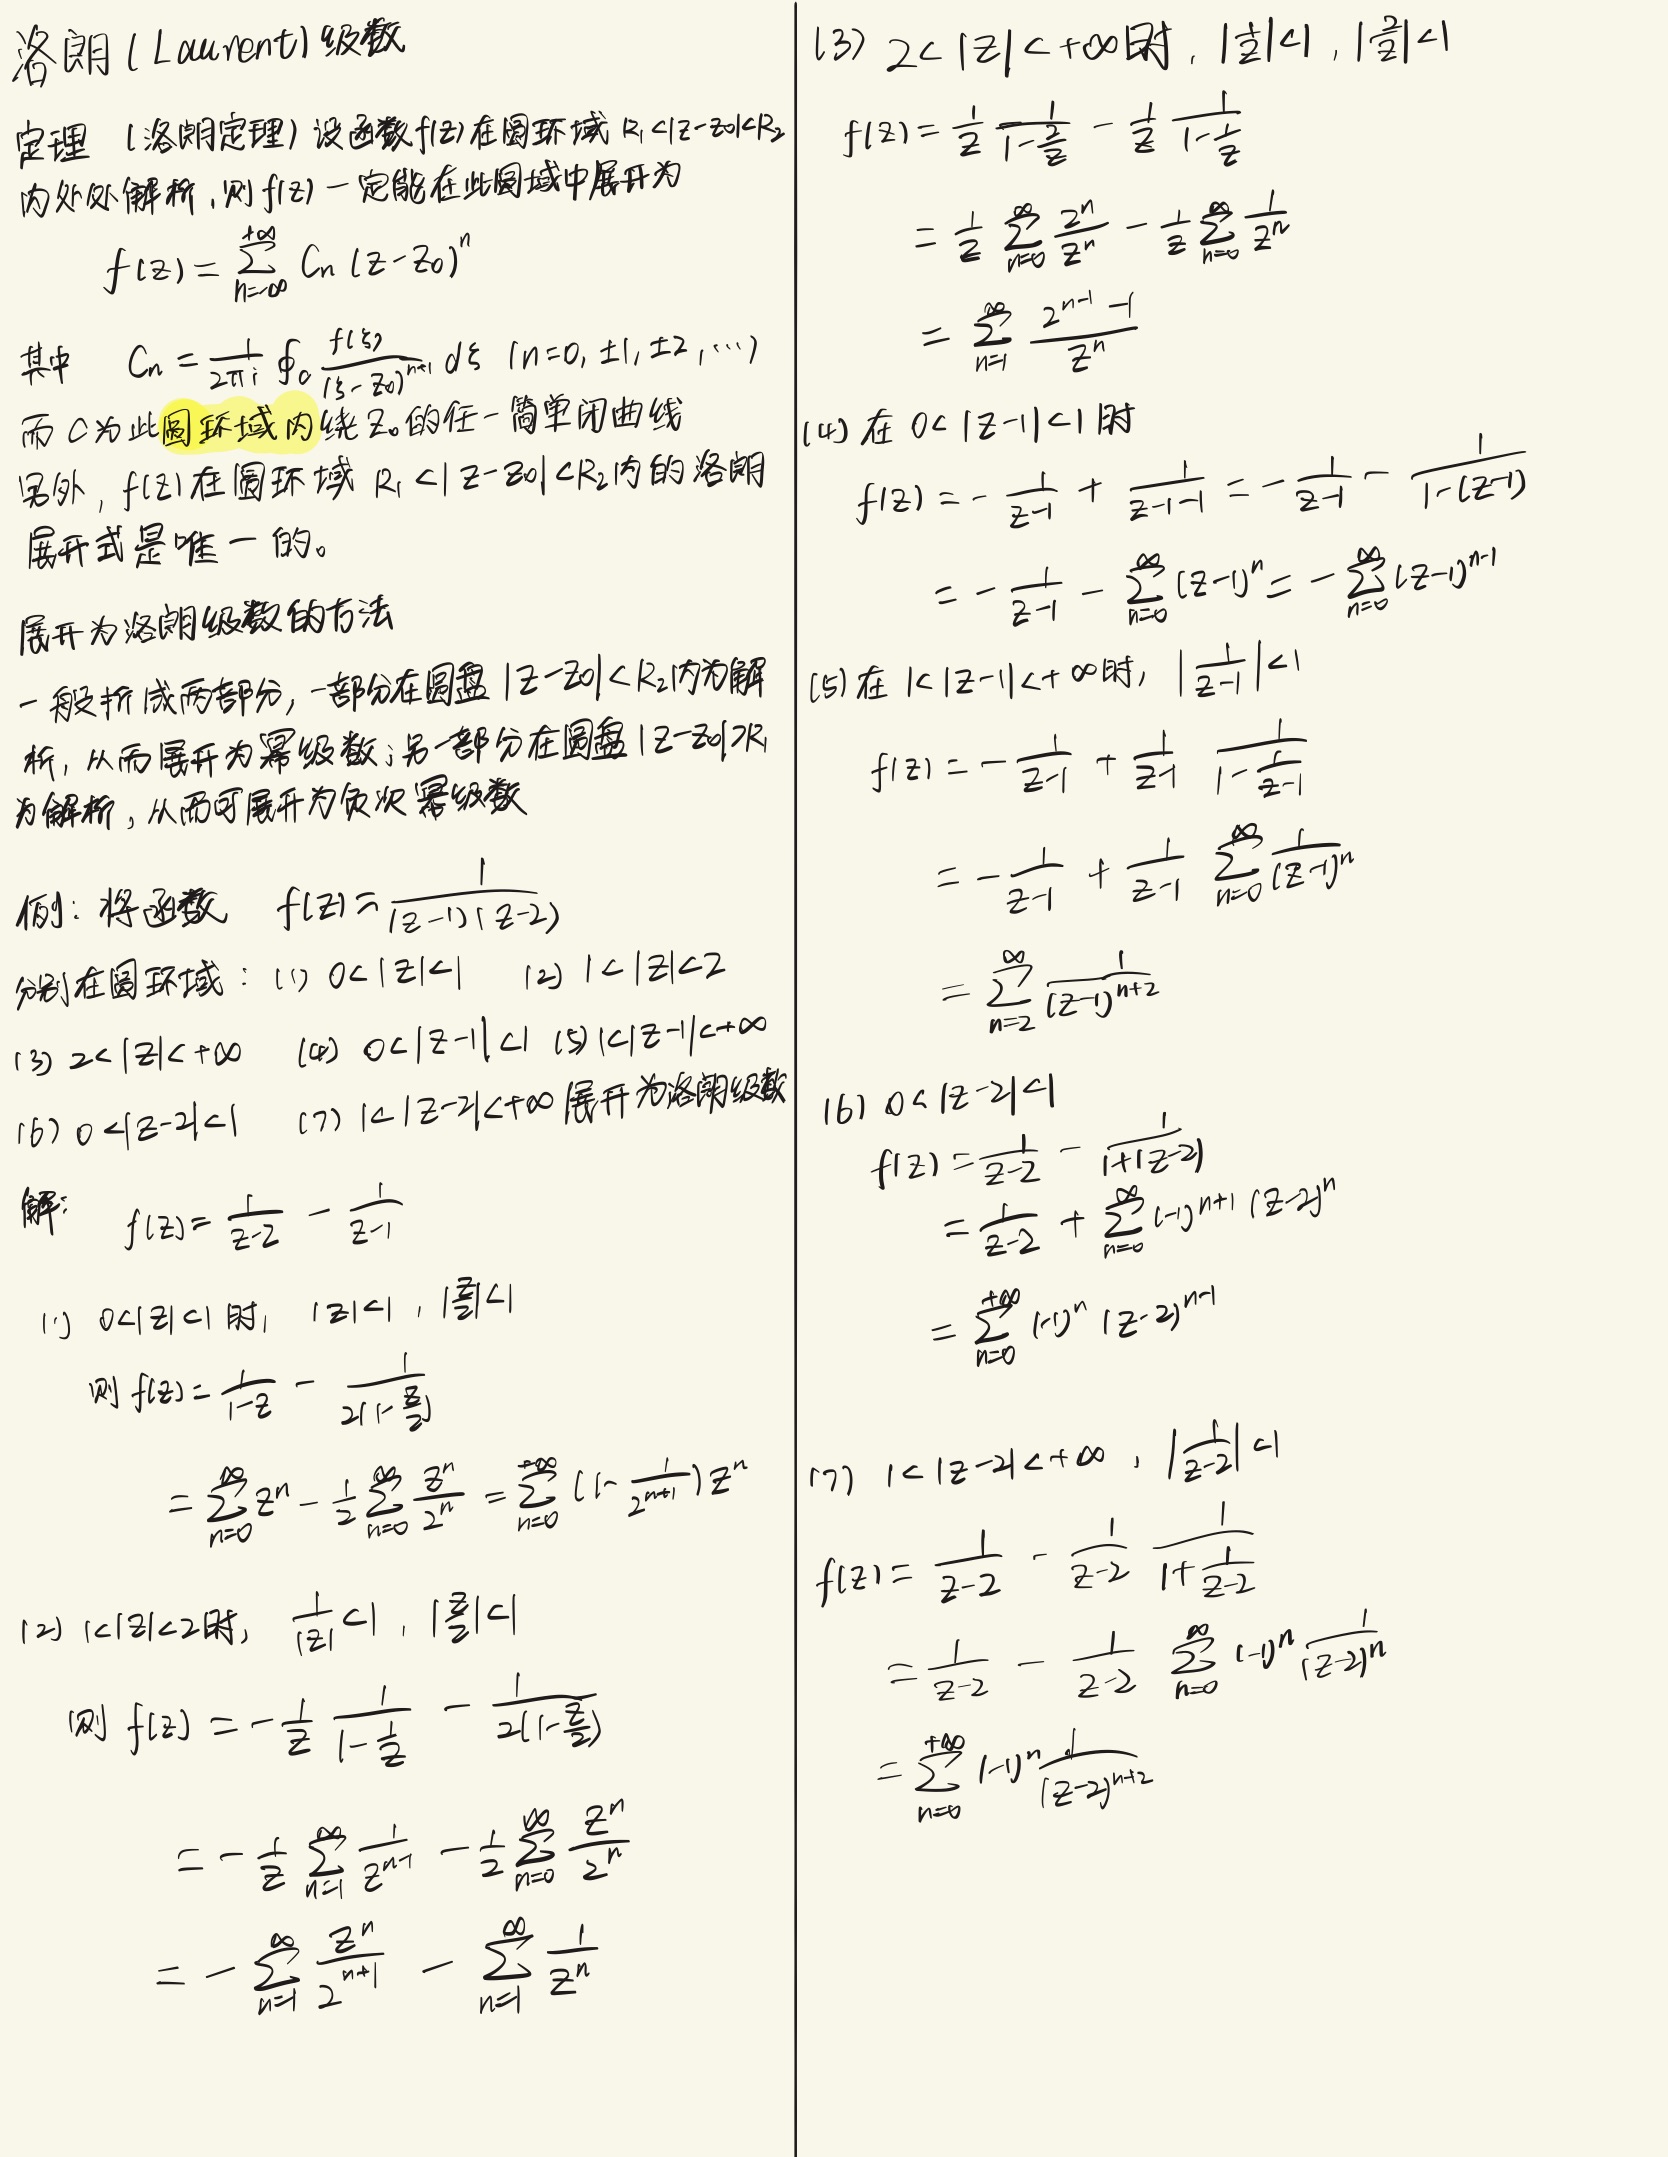 洛朗(Laurent)级数
定理 (洛朗定理)设函数f(z)在圆环域 R₁<|z-z₀|<R₂
内处处解析,则f(z)一定能在此圆域中展开为
f(z) = \sum_{n=-∞}^{+∞} Cₙ (z-z₀)ⁿ
其中 Cₙ = \frac{1}{2πi} ∮_c \frac{f(ξ)}{(ξ-z₀)^{n+1}} dξ (n=0, ±1, ±2, ⋯)
而 C为此圆环域内绕z₀的任一简单闭曲线
另外, f(z)在圆环域 R₁<|z-z₀|<R₂内的洛朗
展开式是唯一的。
展开为洛朗级数的方法
一般拆成两部分,一部分在圆盘|z-z₀|<R₂内为解
析,从而展开为幂级数;另一部分在圆盘|z-z₀|>R₁
为解析,从而可展开为负次幂级数
例:将函数 f(z)=\frac{1}{(z-1)(z-2)}
分别在圆环域:(1) 0<|z|<1 (2) 1<|z|<2
(3) 2<|z|<+∞ (4) 0<|z-1|<1 (5) 1<|z-1|<+∞
(6) 0<|z-2|<1 (7) 1<|z-2|<+∞展开为洛朗级数
解: f(z)=\frac{1}{z-2} - \frac{1}{z-1}
(1) 0<|z|<1时, |z|<1, |\frac{z}{2}|<1
则 f(z)=\frac{1}{1-z} - \frac{1}{2(1-\frac{z}{2})}
= \sum_{n=0}^{∞} zⁿ - \frac{1}{2}\sum_{n=0}^{∞} \frac{zⁿ}{2ⁿ} = \sum_{n=0}^{+∞} (1-\frac{1}{2^{n+1}}) zⁿ
(2) 1<|z|<2时, \frac{1}{|z|}<1, |\frac{z}{2}|<1
则 f(z) = -\frac{1}{z} \frac{1}{1-\frac{1}{z}} - \frac{1}{2(1-\frac{z}{2})}
= -\frac{1}{z} \sum_{n=1}^{∞} \frac{1}{z^{n-1}} - \frac{1}{2}\sum_{n=0}^{∞} \frac{zⁿ}{2ⁿ}
= - \sum_{n=1}^{∞} \frac{zⁿ}{2^{n+1}} - \sum_{n=1}^{∞} \frac{1}{zⁿ}
(3) 2<|z|<+∞时, |\frac{1}{z}|<1, |\frac{2}{z}|<1
f(z) = \frac{1}{z} \frac{1}{1-\frac{2}{z}} - \frac{1}{z} \frac{1}{1-\frac{1}{z}}
= \frac{1}{z} \sum_{n=0}^{∞} \frac{2ⁿ}{zⁿ} - \frac{1}{z}\sum_{n=0}^{∞} \frac{1}{zⁿ}
= \sum_{n=1}^{∞} \frac{2^{n-1}-1}{zⁿ}
(4) 在 0<|z-1|<1时
f(z) = -\frac{1}{z-1} + \frac{1}{z-1-1} = -\frac{1}{z-1} - \frac{1}{1-(z-1)}
= -\frac{1}{z-1} - \sum_{n=0}^{∞} (z-1)ⁿ = -\sum_{n=0}^{∞} (z-1)^{n-1}
(5) 在 1<|z-1|<+∞时, |\frac{1}{z-1}|<1
f(z) = -\frac{1}{z-1} + \frac{1}{z-1} \frac{1}{1-\frac{1}{z-1}}
= -\frac{1}{z-1} + \frac{1}{z-1} \sum_{n=0}^{∞} \frac{1}{(z-1)ⁿ}
= \sum_{n=2}^{∞} \frac{1}{(z-1)^{n+2}}
(6) 0<|z-2|<1
f(z) = \frac{1}{z-2} - \frac{1}{1+(z-2)}
= \frac{1}{z-2} + \sum_{n=0}^{∞} (-1)^{n+1} (z-2)ⁿ
= \sum_{n=0}^{+∞} (-1)ⁿ (z-2)^{n-1}
(7) 1<|z-2|<+∞, |\frac{1}{z-2}|<1
f(z) = \frac{1}{z-2} - \frac{1}{z-2} \frac{1}{1+\frac{1}{z-2}}
= \frac{1}{z-2} - \frac{1}{z-2} \sum_{n=0}^{∞} (-1)ⁿ \frac{1}{(z-2)ⁿ}
= \sum_{n=0}^{+∞} (-1)ⁿ \frac{1}{(z-2)^{n+2}}